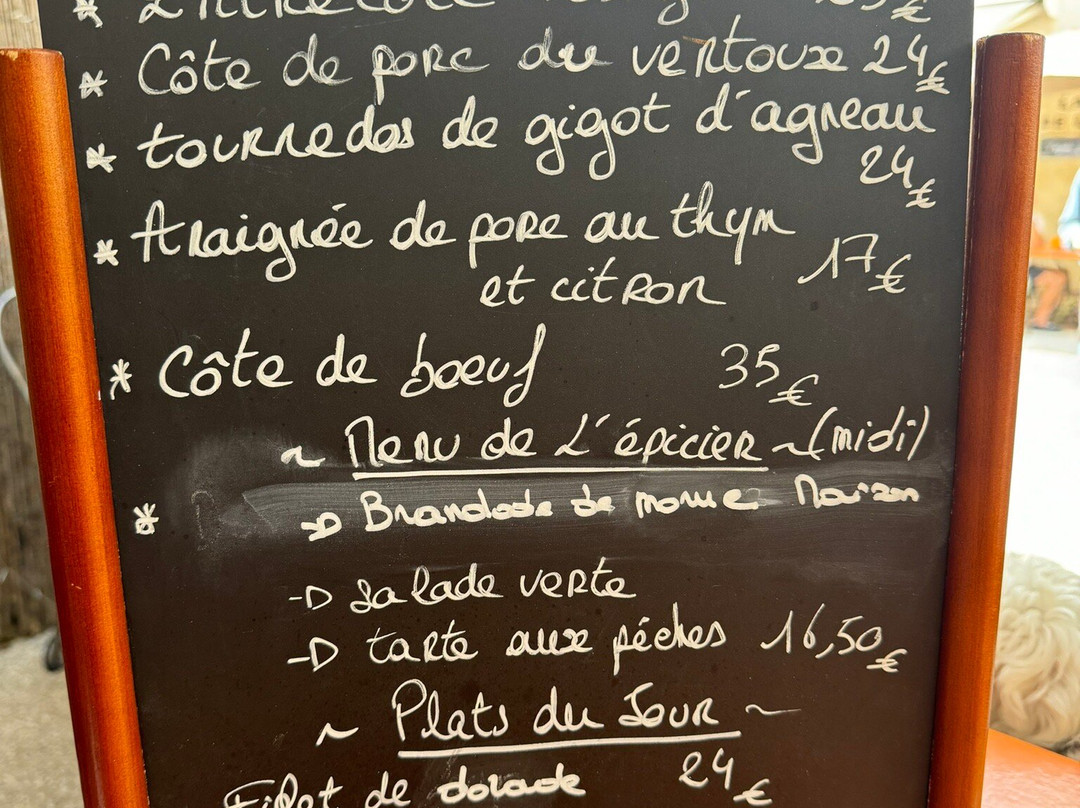 * L'entrecôte €
* Côte de porc du ventoux 24€
* tournedos de gigot d'agneau
24€
* Araignée de porc au thym
et citron 17€
* Côte de boeuf 35€
~ Menu de L'épicier ~ (midi)
* → Brandade de morue Maison
→ Salade verte
→ tarte aux pêches 16,50€
~ Plats du Jour ~
Filet de dorade 24€